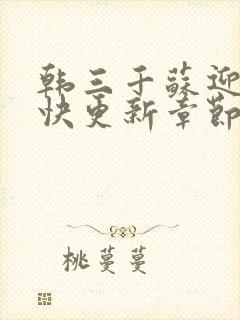 韩三千苏迎
快更新章节
桃蔓蔓